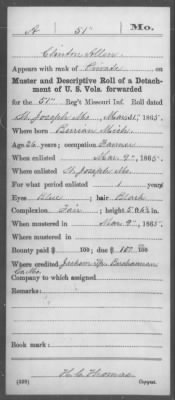 A 51 Mo.
Clinton Allen
Appears with rank of Private on
Muster and Descriptive Roll of a Detach-
ment of U. S. Vols. forwarded
for the 51" Reg't Missouri Inf. Roll dated
St. Joseph Mo. Mar. 31, 1865.
Where born Berrien Mich.
Age 26 years; occupation Farmer
When enlisted Mar. 9", 1865.
Where enlisted St. Joseph Mo.
For what period enlisted 1 years
Eyes Blue; hair Black
Complexion Fair; height 5 ft. in.
When mustered in Mar. 9", 1865.
Where mustered in
Bounty paid $ 100; due $ 100
Where credited Jackson Tp. Buchanan
Co. Mo.
Company to which assigned
Remarks:
Book mark:
H. C. Thomas
(339) Copyist.